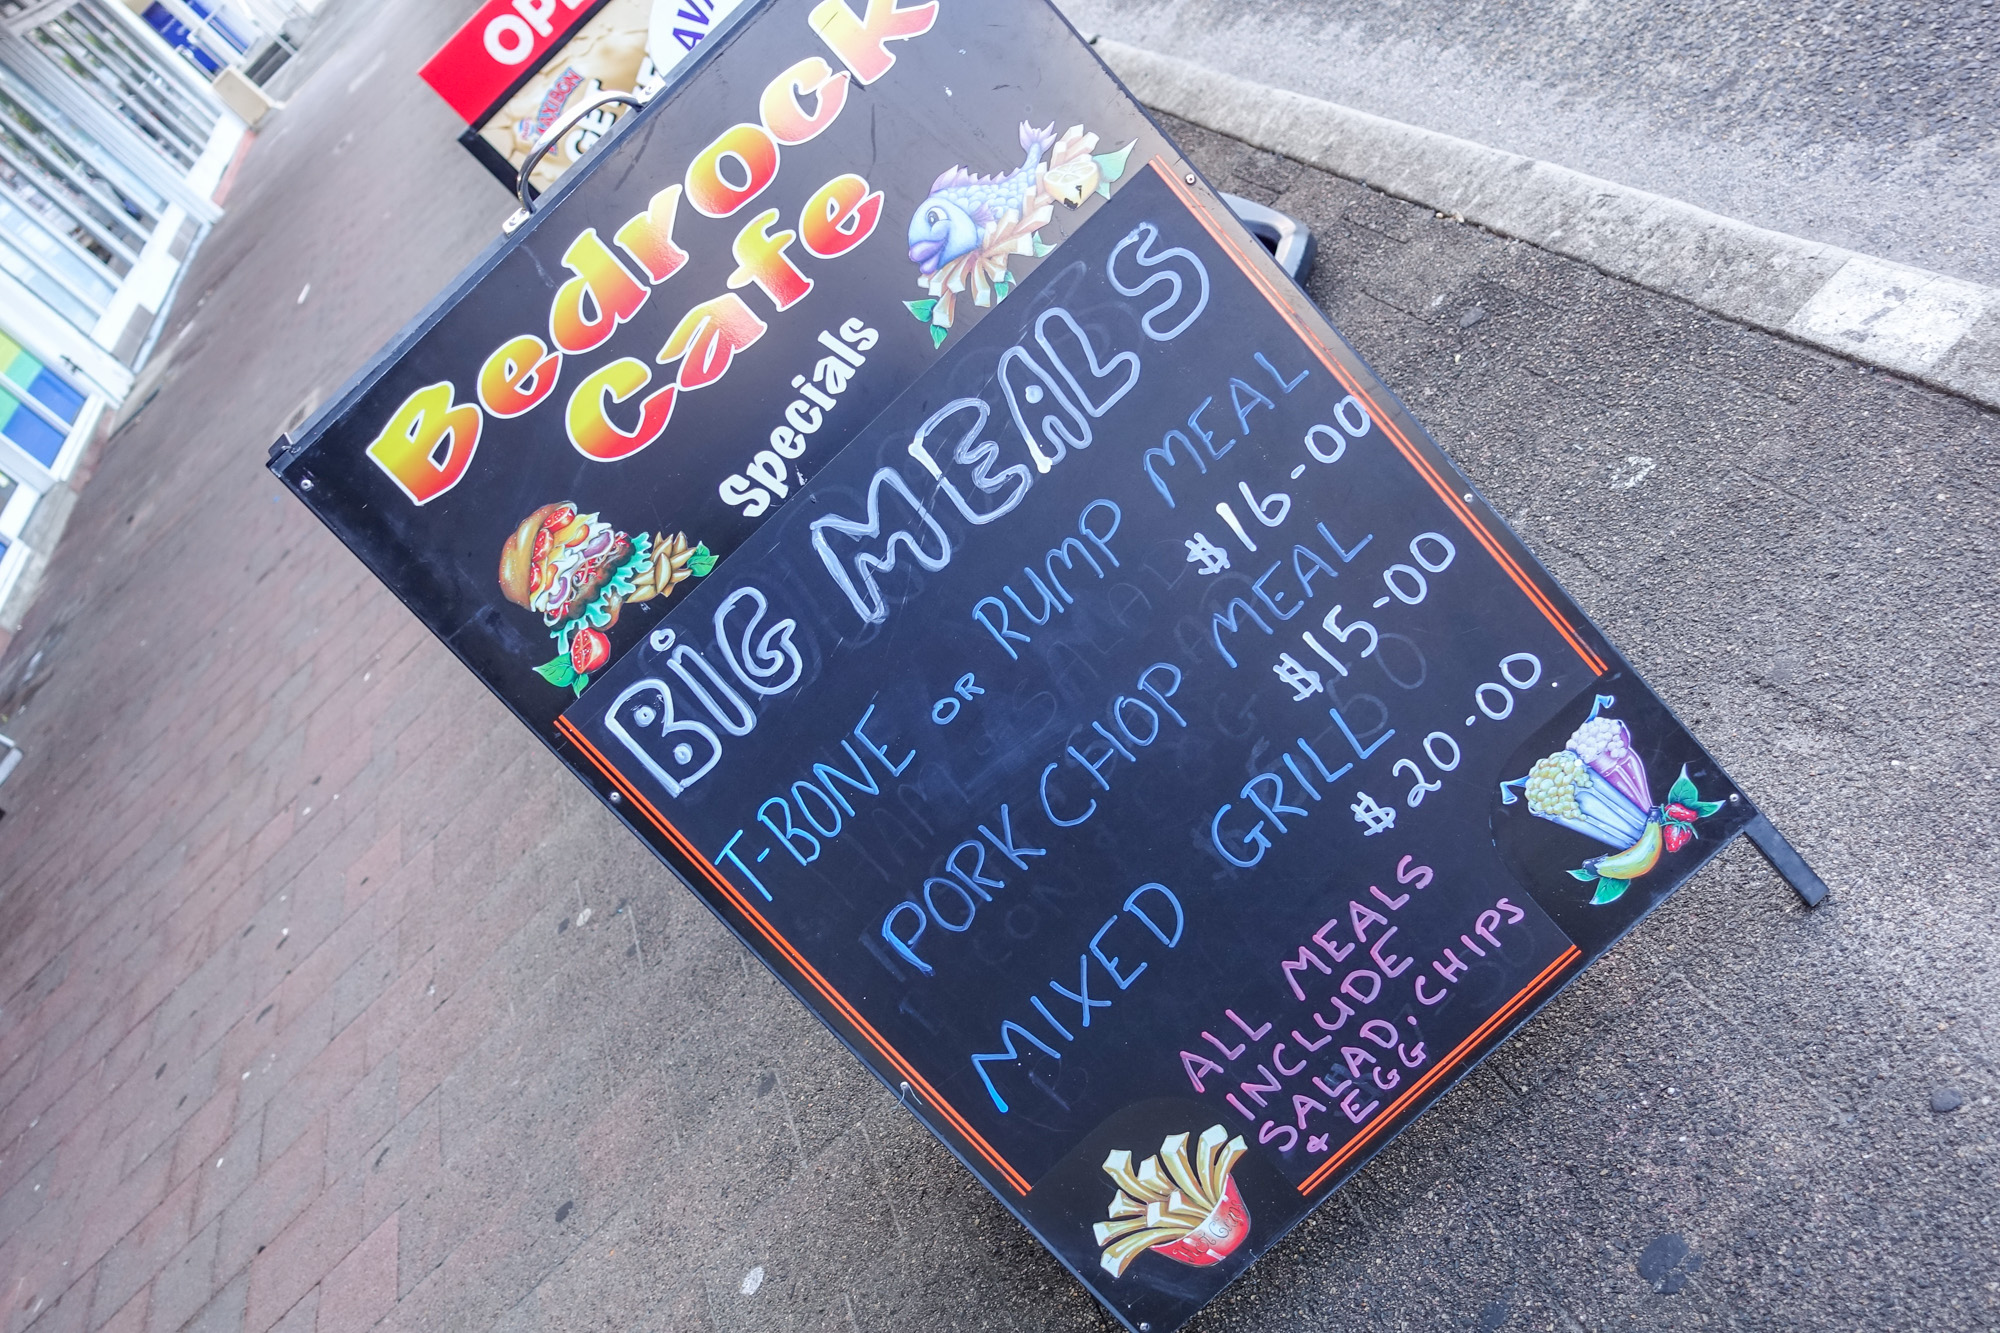 Bedrock
Cafe
Specials
BIG MEALS
T-BONE OR RUMP MEAL
$16-00
PORK CHOP MEAL
$15-00
MIXED GRILL
$20-00
ALL MEALS
INCLUDE
SALAD, CHIPS
& EGG
GET